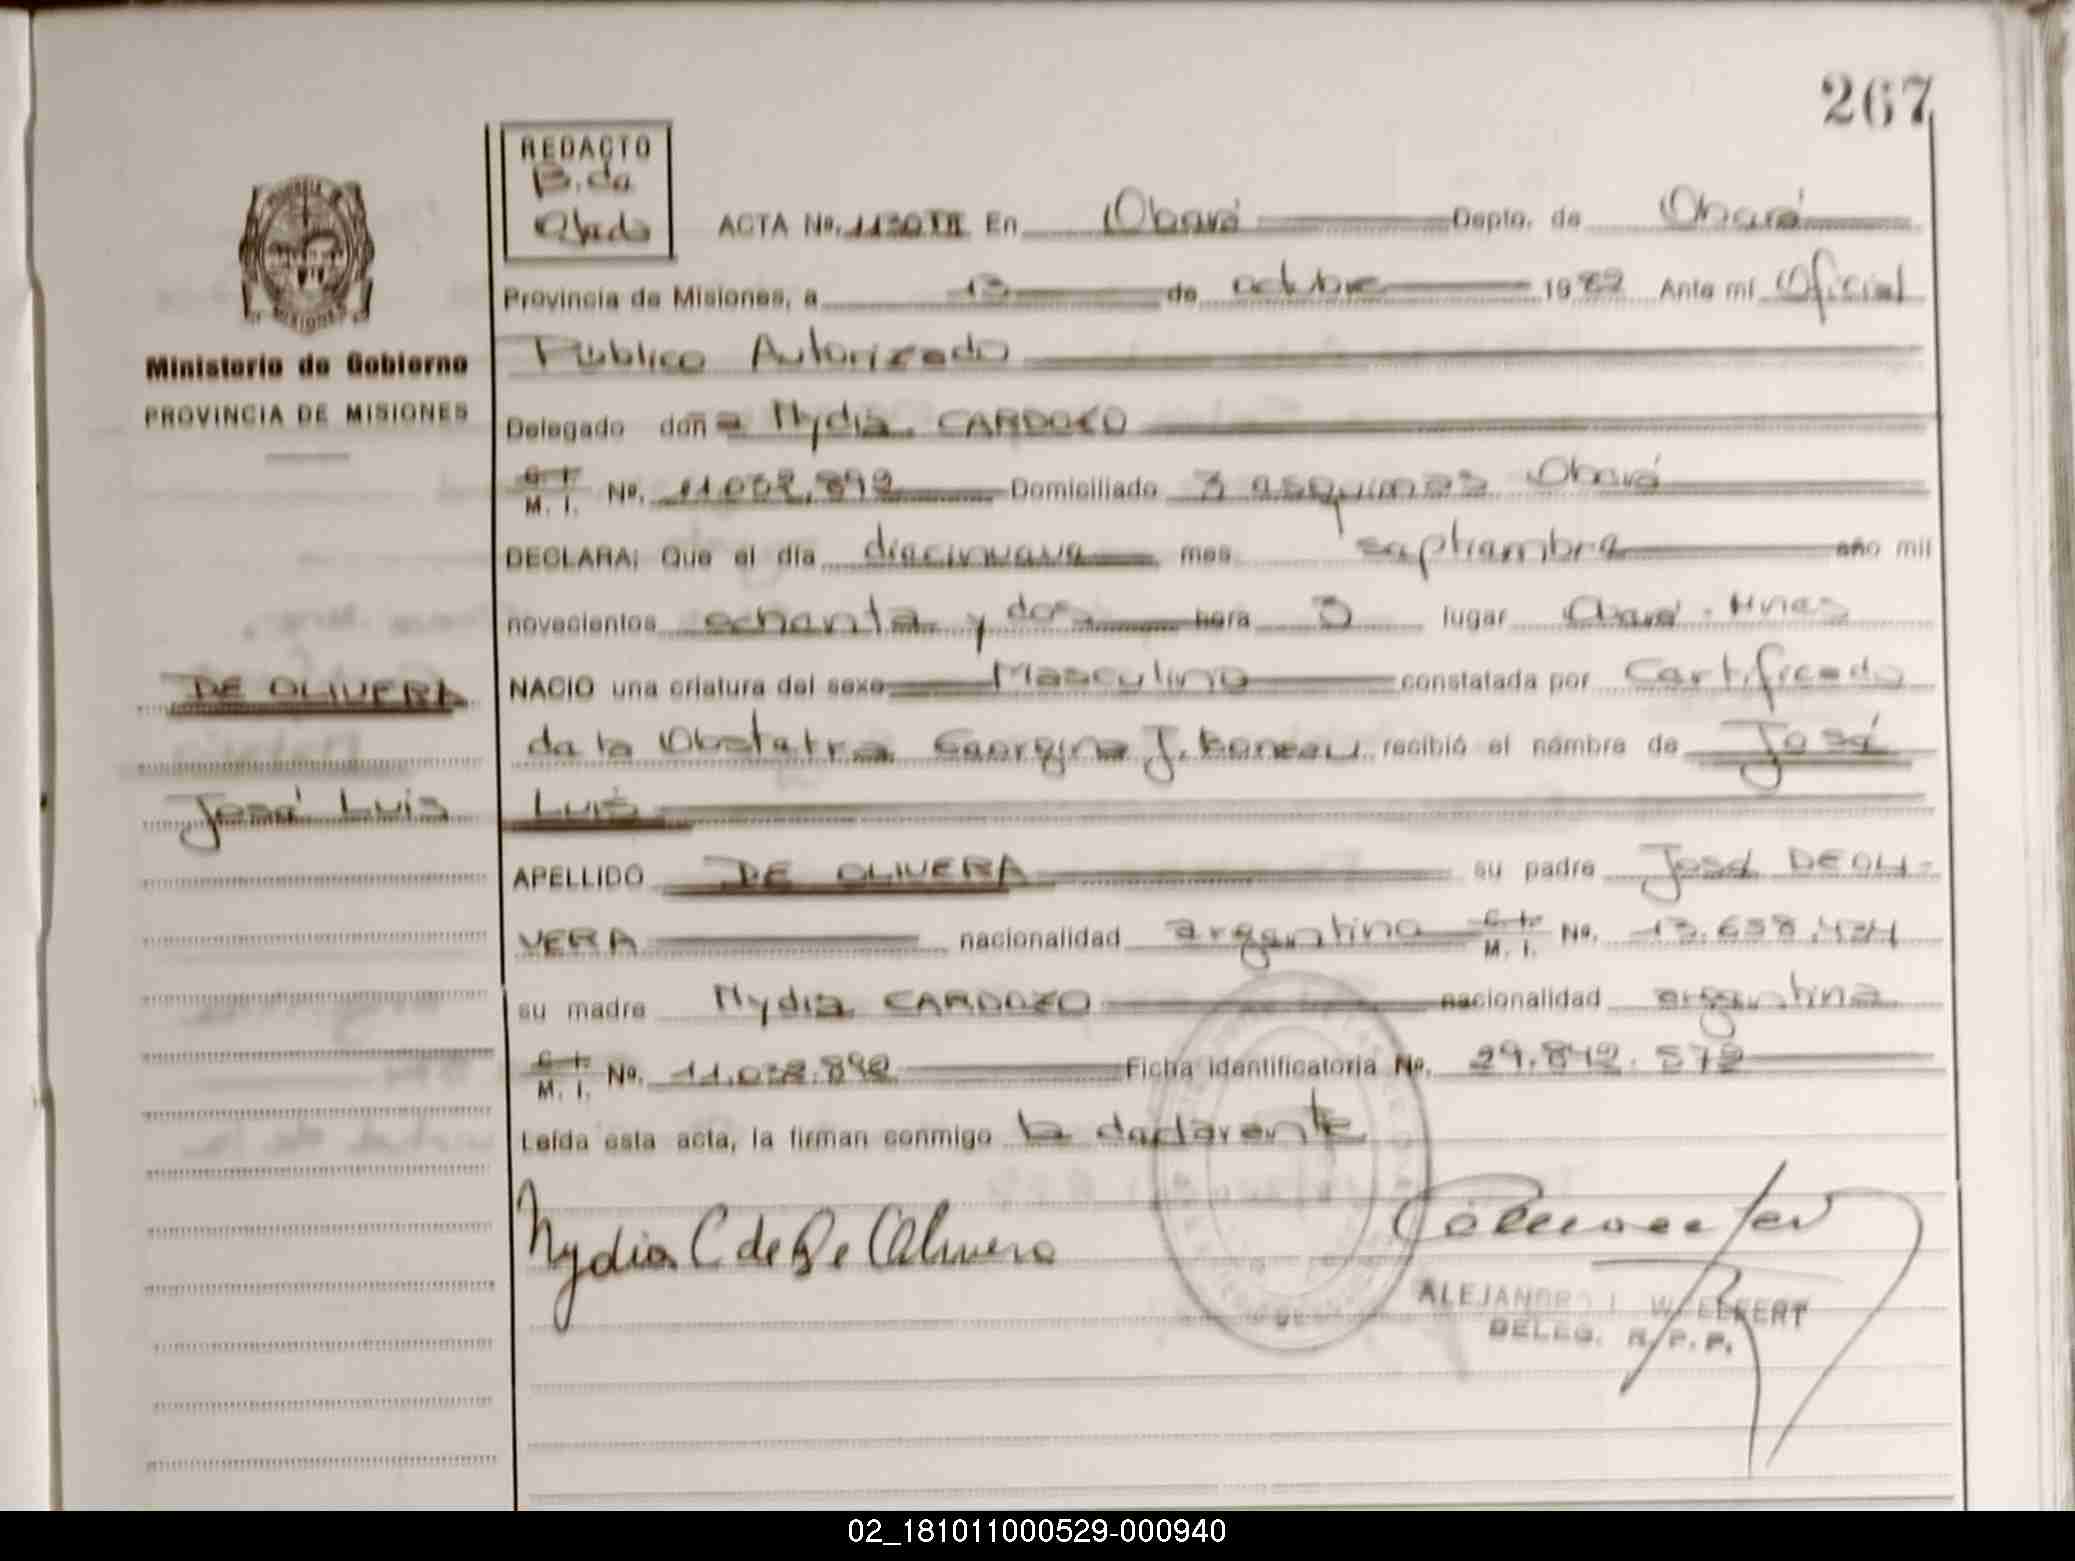 267
REDACTO
B. da
ACTA Nº. 1130 En Oberá Depto. de Oberá
Provincia de Misiones, a 13 de octubre 1982 Ante mí Oficial
Público Autorizado
Ministerio de Gobierno
PROVINCIA DE MISIONES
Delegado doña Nydia CARDOZO
C. I.
M. I. Nº. 11.032.892 Domiciliado 3 esquinas Oberá
DECLARA: Que el día diecinueve mes septiembre año mil
novecientos ochenta y dos hora 3 lugar Oberá - Mnes
DE OLIVERA
NACIO una criatura del sexo Masculino constatada por Certificado
de la Obstetra Georgina J. recibió el nombre de José
José Luis
Luis
APELLIDO DE OLIVERA su padre José DE OLI-
VERA nacionalidad argentino C. I.
M. I. Nº. 13.658.424
su madre Nydia CARDOZO nacionalidad argentina
C. I.
M. I. Nº. 11.032.892 Ficha identificatoria Nº. 29.842.572
Leída esta acta, la firman conmigo la declarante
Nydia C de De Olivera
ALEJANDRO
DELEG. R. P. P.
02_181011000529-000940